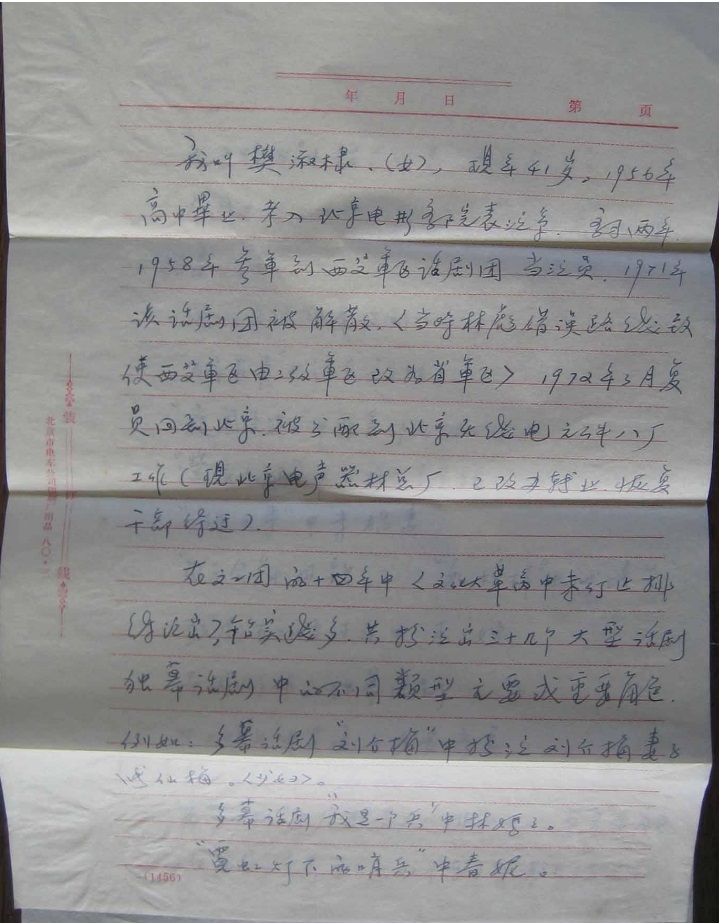 年 月 日 第 页
我叫樊淑棣.(女),现年41岁。1956年
高中畢业.考入北京电影学院表演系.学习两年.
1958年参军到西艺軍区话剧团当演员.1971年
该话剧团被解散.〈当時林彪错误路线致
使西艺軍区由二级軍区改为省軍区〉1972年3月复
员回到北京.被分配到北京无线电元件八厂
工作(现北京电声器材总厂.已改办转业.恢复
干部待迂).
在文工团的十四年中〈文化大革命中未停止排
练演出〉
共扮演出三十几个大型话剧
独幕话剧中的不同类型主要或重要角色.
例如:多幕话剧"刘介梅"中扮演刘介梅妻子
〈少女〉。
多幕话剧"我是一个兵"中林
"霓虹灯下的哨兵"中春妮。
装
线
北京市电车公司印刷厂出品 八〇·
(1456)